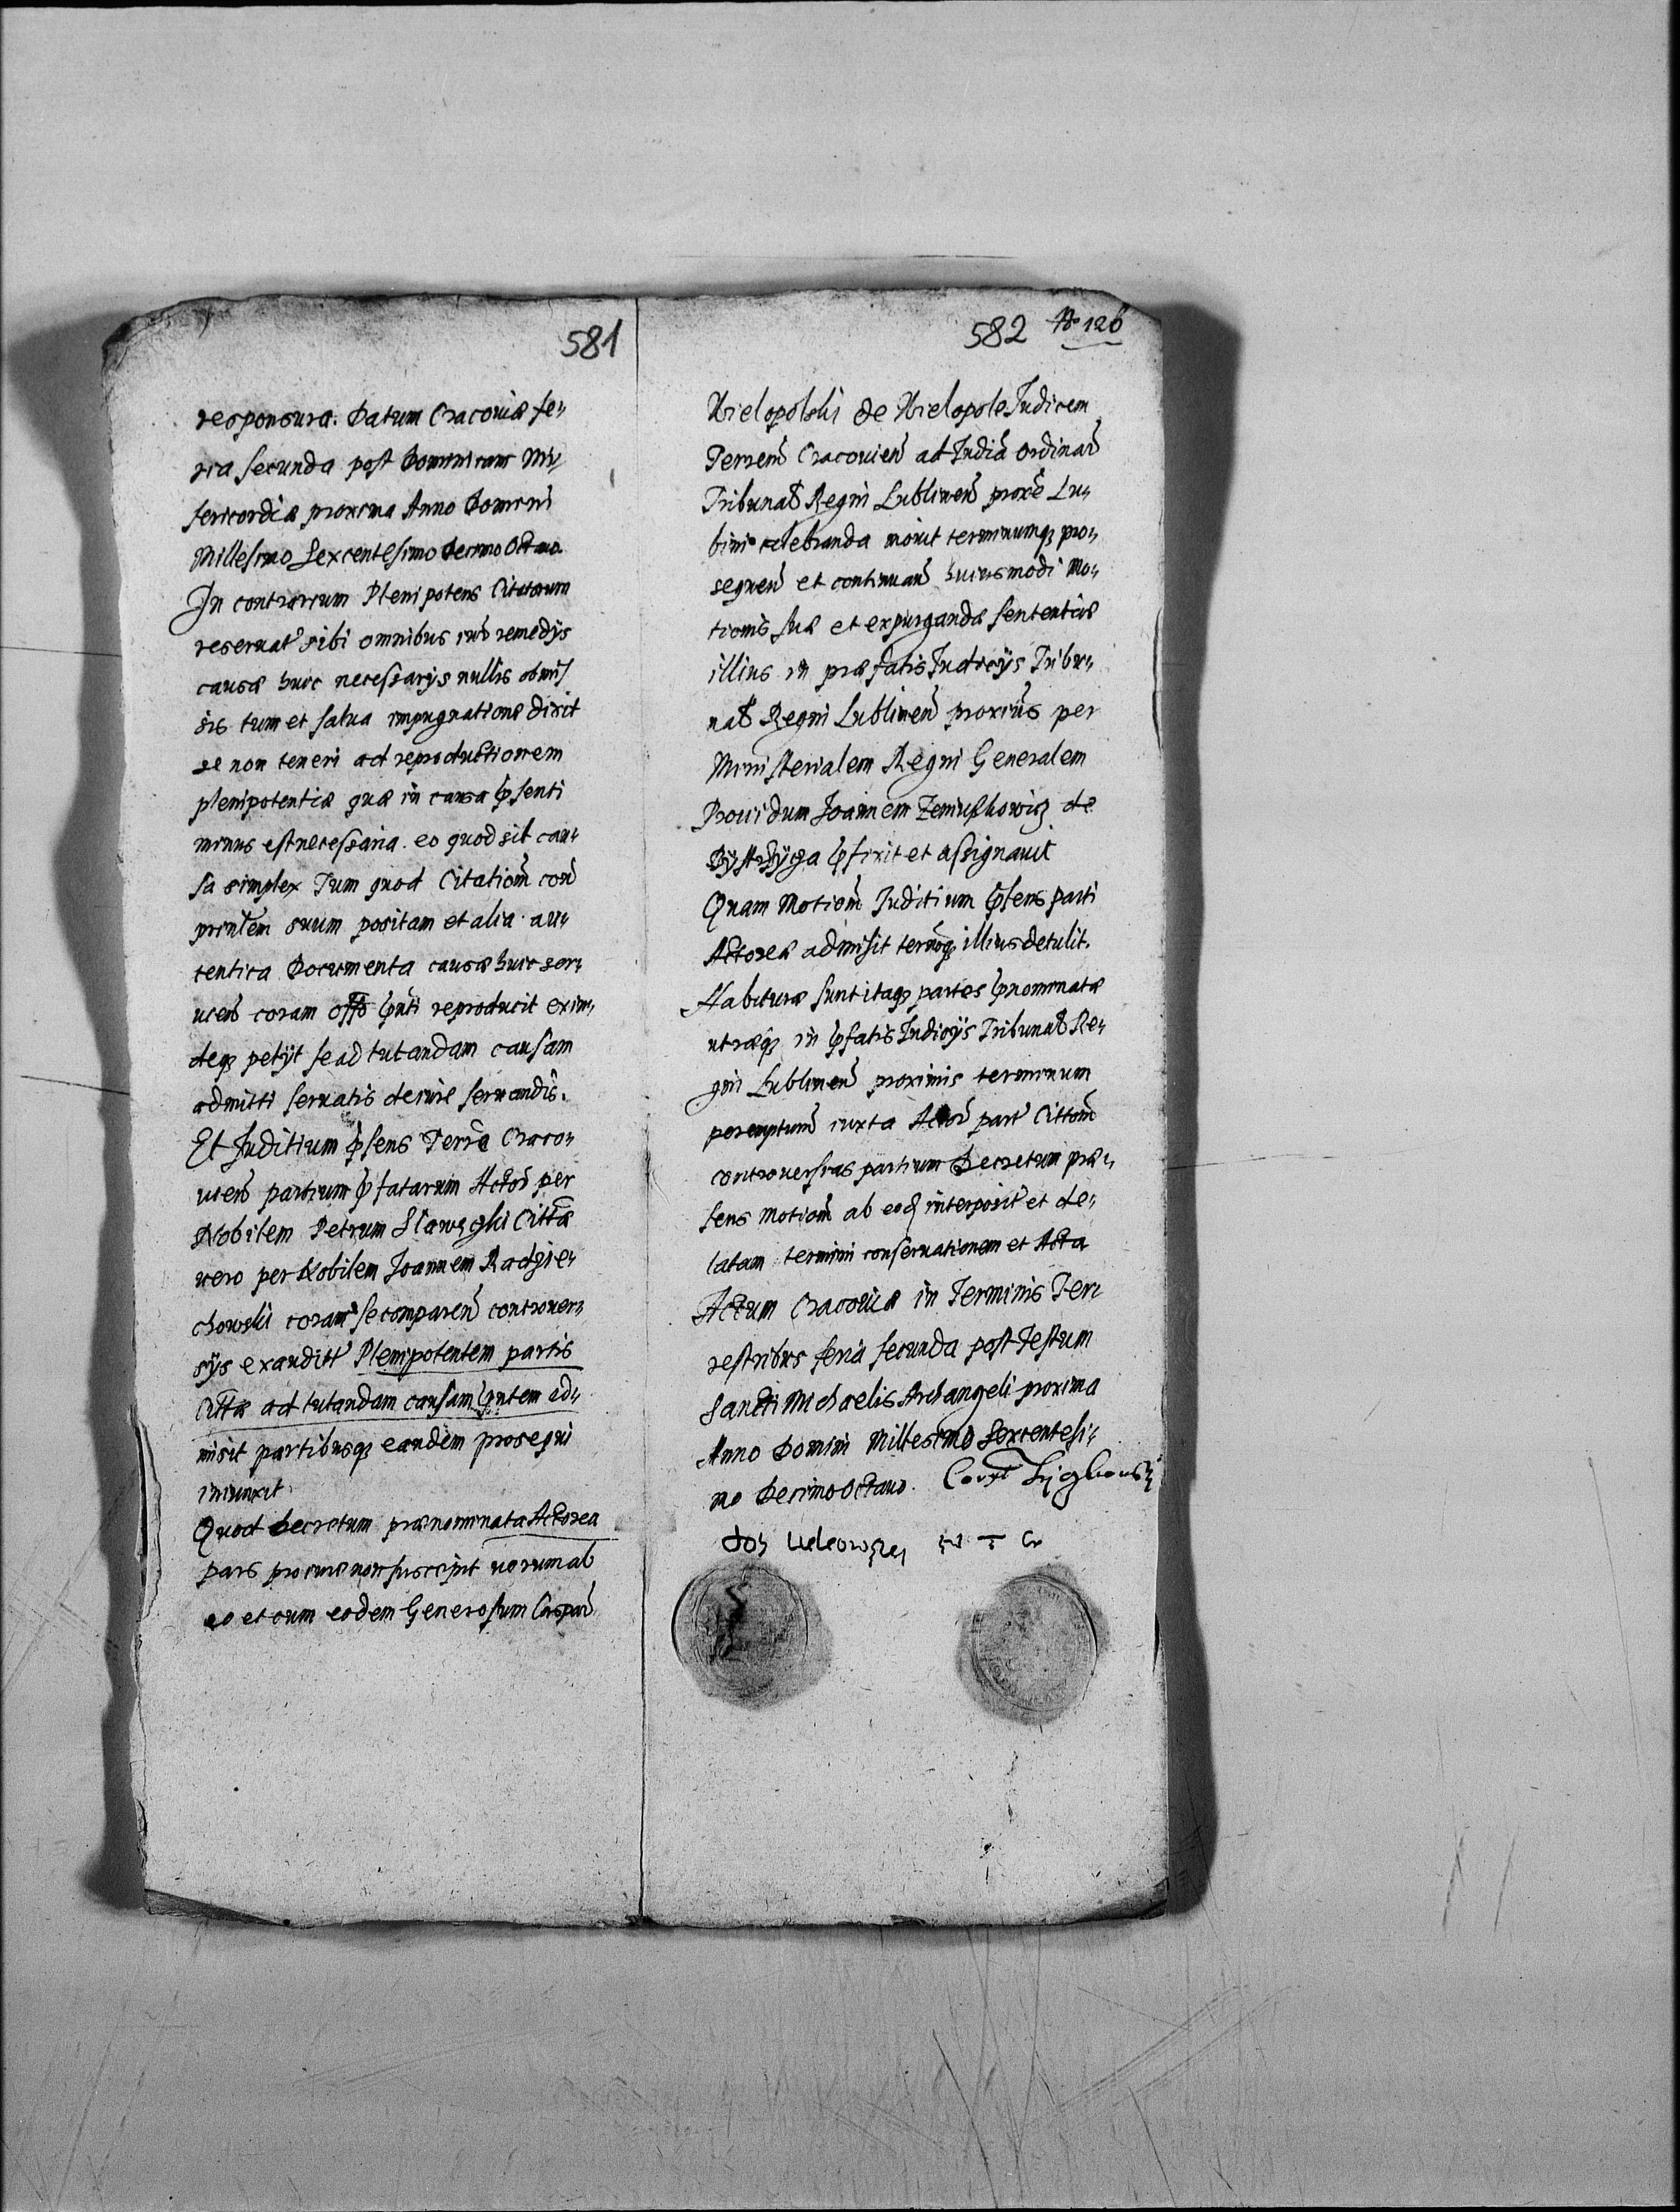 581
responsura. Datum Cracoviæ fe„
ria secunda post Dominicam Mi„
sericordiæ proxima Anno Domini
Millesimo Sexcentesimo decimo Octavo.
In contrarium Plenipotens Citatorum
reservat sibi omnibus iuris remedÿs
causæ huic necessarÿs nullis obmis
sis tum et salva impugnatione dixit
se non teneri ad reproductionem
plenipotentiæ quæ in causa psenti
minus est necessaria eo quod sit cau„
sa simplex Tum quod Citationem
suum positam et alia au„
tentica Documenta causæ huic ser„
vien coram offo pnti reproducit exin„
deq petÿt se ad tutandam causam
admitti servatis de iure servandis.
Et Juditium psens Terræ Craco„
vien partium pfatarum Actor per
Nobilem Petrum Citta
vero per Nobilem Joannem Radzie„
chowski coram se comparen controver„
sÿs exauditt Plenipotentem partis
Cittæ ad tutandam causam pntem ad„
misit partibusq eandem prosequi
iniunxit
Quod decretum prænominata Actorea
pars pro iure non suscepit verum ab
eo et cum eodem Generosum Caspar
582 No 126
Wielopolski de Wielopole Judicem
Terren Cracovien ad Judia Ordinar
Tribunal Regni Lublinen proxe Lu„
blini celebranda movit terminumq pro„
sequen et continuan huiusmodi Mo„
tionis suæ et expurgandæ sententiæ
illius in præfatis Judicÿs Tribu„
nal Regni Lublinen proximis per
Ministerialem Regni Generalem
Providum Joannem de
pfixit et assignavit
Quam Motionem Juditium psens parti
Actoreæ admisit termq illius detulit.
Habituræ sunt itaq partes pnominatæ
utræq in pfatis Judicÿs Tribunal Re„
gni Lublinen proximis terminum
peremptum iuxta Actor part Cittom
controversias partium Decretum præ„
sens Motionem ab eod interposit et de„
latam termini conservationem et Acta
Actum Cracoviæ in Terminis Ter„
restribus feria secunda post Festum
Sancti Michaelis Archangeli proxima
Anno Domini Millesimo Sexcentesi„
mo Decimo Octavo.